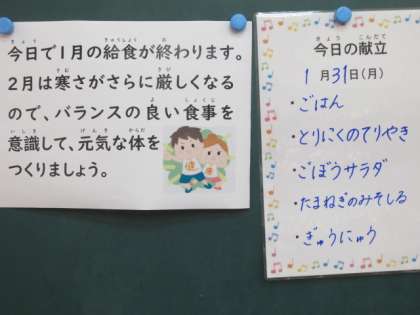 今日で1月の給食が終わります。
2月は寒さがさらに厳しくなる
ので、バランスの良い食事を
意識して、元気な体を
つくりましょう。
今日の献立
1月31日(月)
・ごはん
・とりにくのてりやき
・ごぼうサラダ
・たまねぎのみそしる
・ぎゅうにゅう